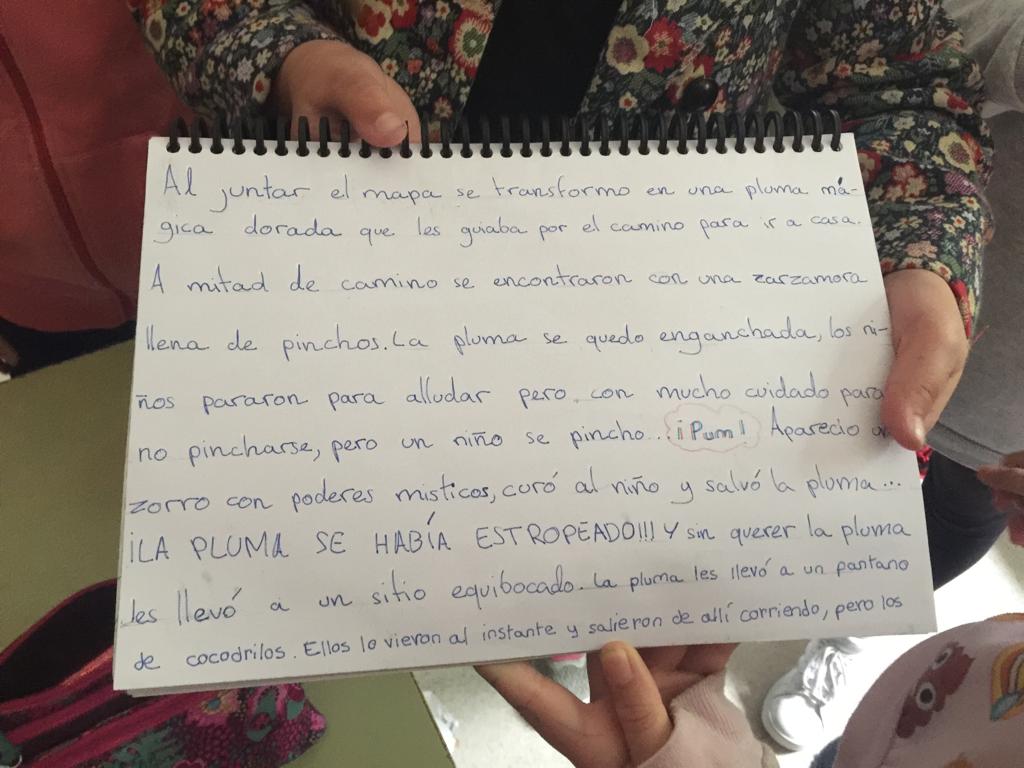 Al juntar el mapa se transformo en una pluma má-
gica dorada que les guiaba por el camino para ir a casa.
A mitad de camino se encontraron con una zarzamora
llena de pinchos. La pluma se quedo enganchada, los ni-
ños pararon para alludar pero con mucho cuidado para
no pincharse, pero un niño se pincho... ¡Pum! Aparecio un
zorro con poderes misticos, curó al niño y salvó la pluma...
¡LA PLUMA SE HABÍA ESTROPEADO!!! Y sin querer la pluma
les llevó a un sitio equibocado. La pluma les llevó a un pantano
de cocodrilos. Ellos lo vieron al instante y salieron de allí corriendo, pero los